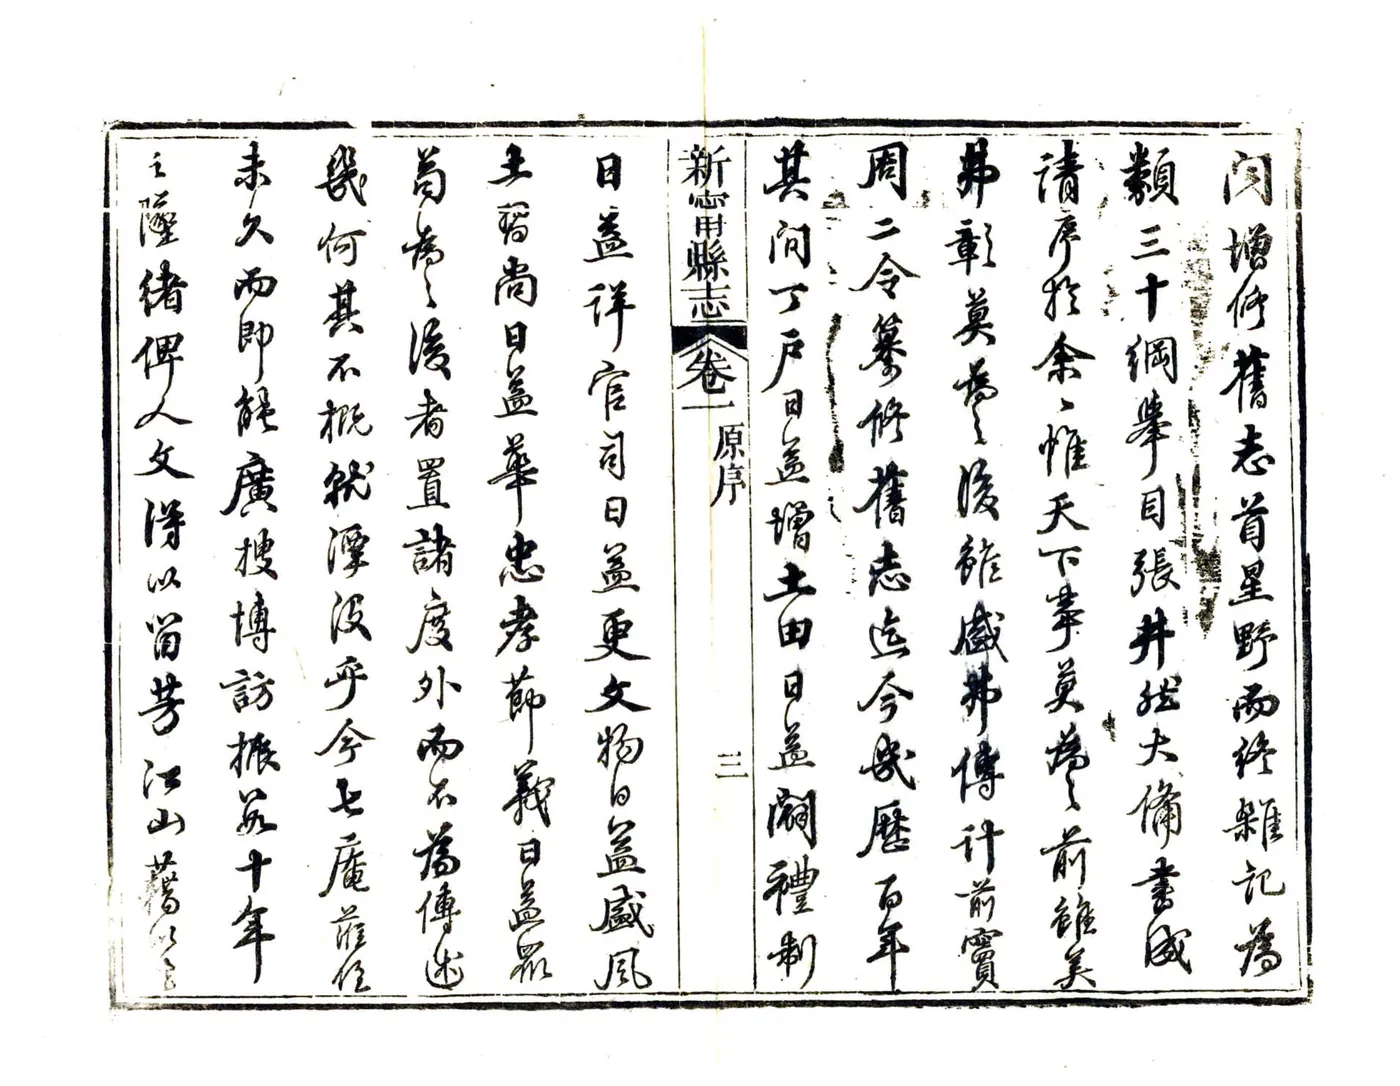 問增修舊志首星野而終雜記爲
類三十綱舉目張井然大備書成
請序於余〻惟天下事莫爲之前雖美
弗彰莫爲之後雖盛弗傳計前竇
周二令纂修舊志迄今幾歷百年
其間丁戶日益增土田日益闢禮制
新甯縣志 卷一 原序 三
日益詳官司日益更文物日益盛風
土習尚日益華忠孝節義日益眾
苟爲之後者置諸度外而不爲傳述
幾何其不概就湮沒乎今七庵蒞任
未久而即能廣搜博訪振數十年
之墜緒俾人文得以留芳江山藉以